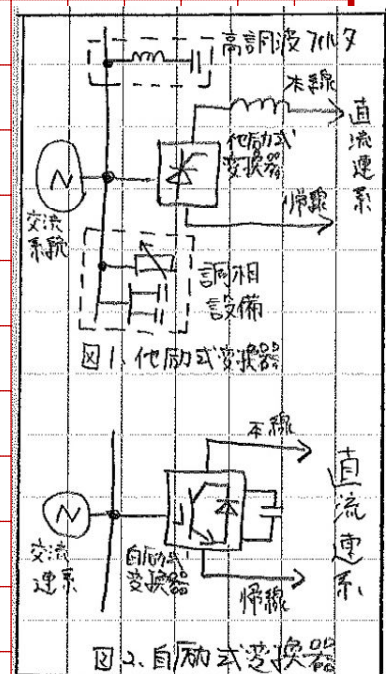 高調波フィルタ
本線
直流連系
他励式
変換器
帰線
交流
系統
調相
設備
図1. 他励式変換器
本線
直流連系
交流
連系
自励式
変換器
帰線
図2. 自励式変換器